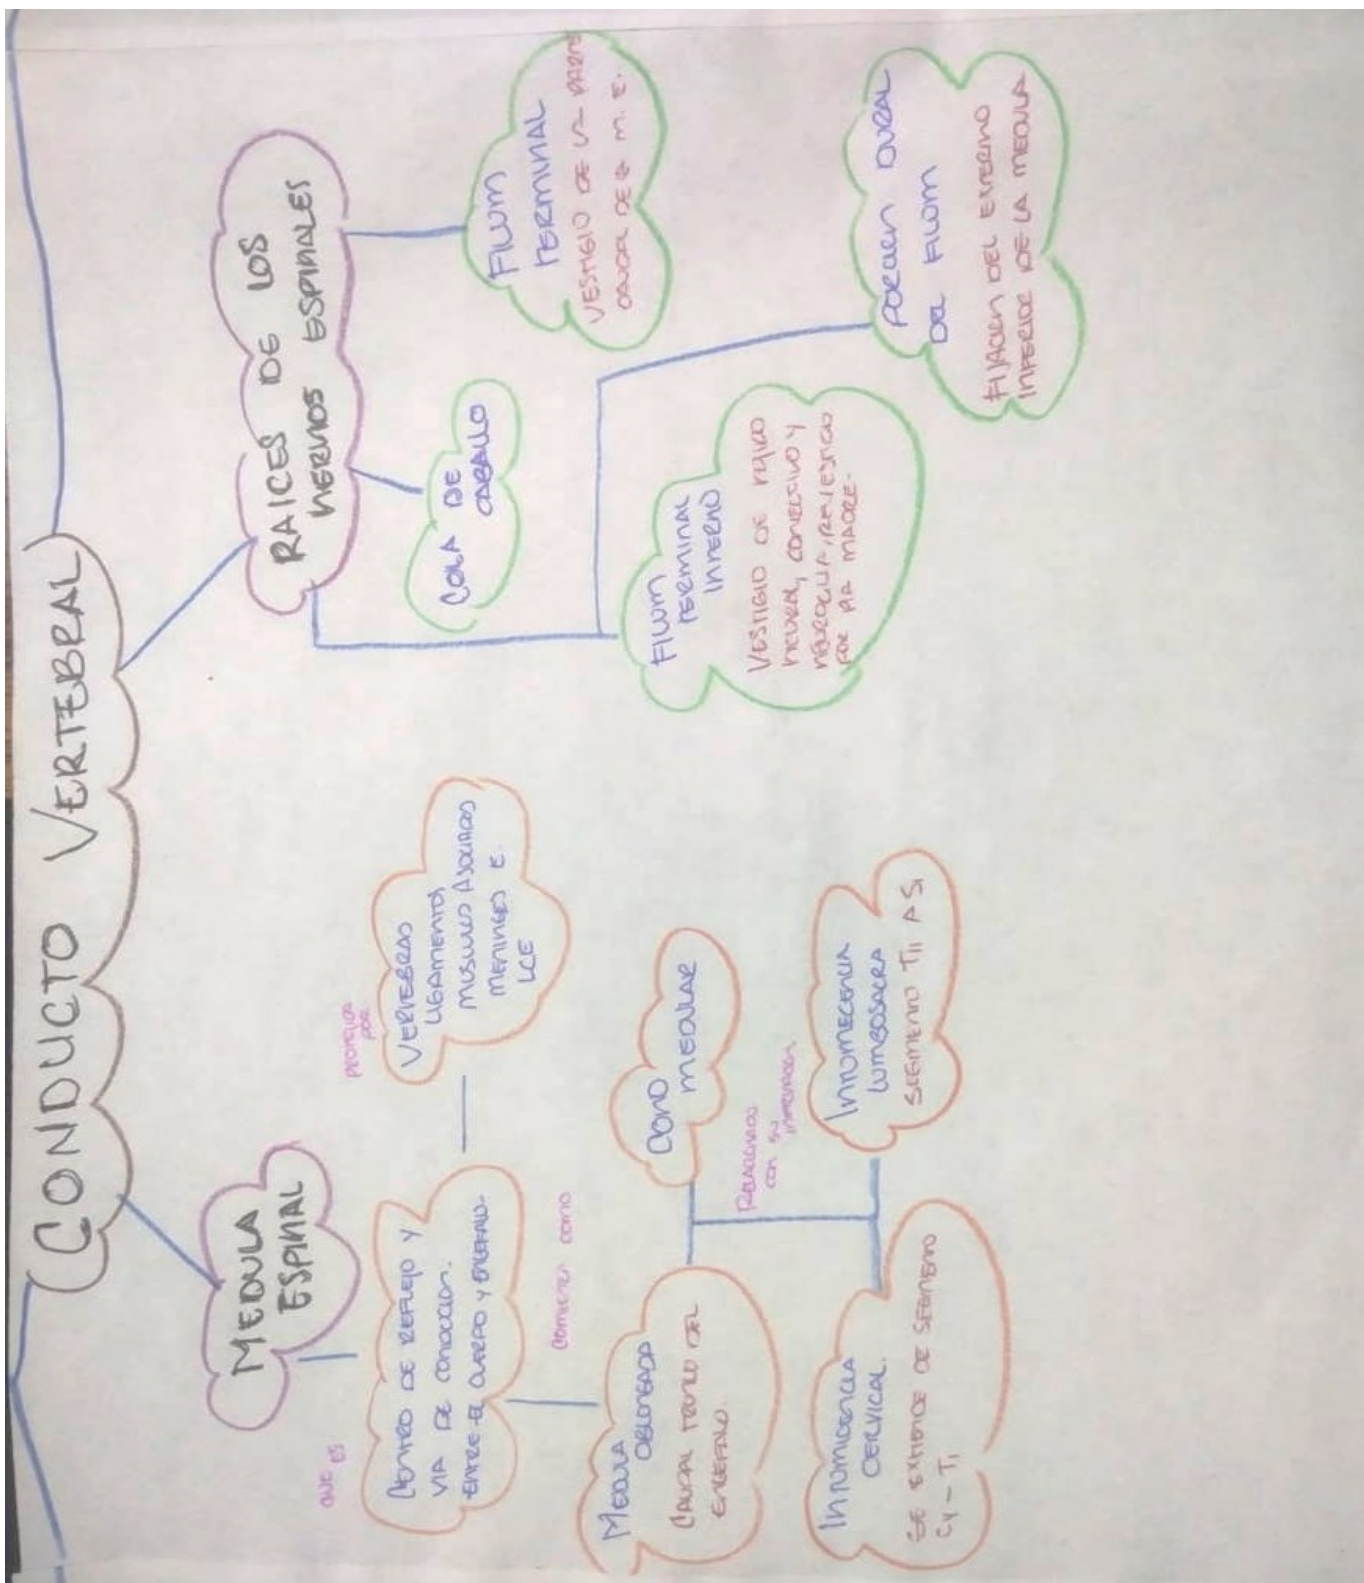 CONDUCTO VERTEBRAL
MEDULA
ESPINAL
QUE ES
CENTRO DE REFLEJO Y
VIA DE CONDUCCION.
ENTRE EL CUERPO Y ENCEFALO.
PROTEGIDA
POR
VERTEBRAS
LIGAMENTOS
MUSCULOS ASOCIADOS
MENINGES E.
LCE
COMIENZA COMO
MEDULA
OBLONGADA
CAUDAL TRONCO DEL
ENCEFALO.
CONO
MEDULAR
RELACIONADO
CON SU
INERVACION
INTUMIDENCIA
CERVICAL.
SE EXTIENDE DE SEGMENTO
C4 - T1
INTUMECENCIA
LUMBOSACRA
SEGMENTO T11 A S1
RAICES DE LOS
NERVIOS ESPINALES
COLA DE
CABALLO
FILUM
TERMINAL
VESTIGIO DE LA PARTE
CAUDAL DE M. E.
FILUM
TERMINAL
INTERNO
VESTIGIO DE TEJIDO
NEURAL, CONECTIVO Y
NEUROGLIA, REVESTIDO
POR PIA MADRE.
PORCION DURAL
DEL FILUM
FIJACION DEL EXTREMO
INFERIOR DE LA MEDULA